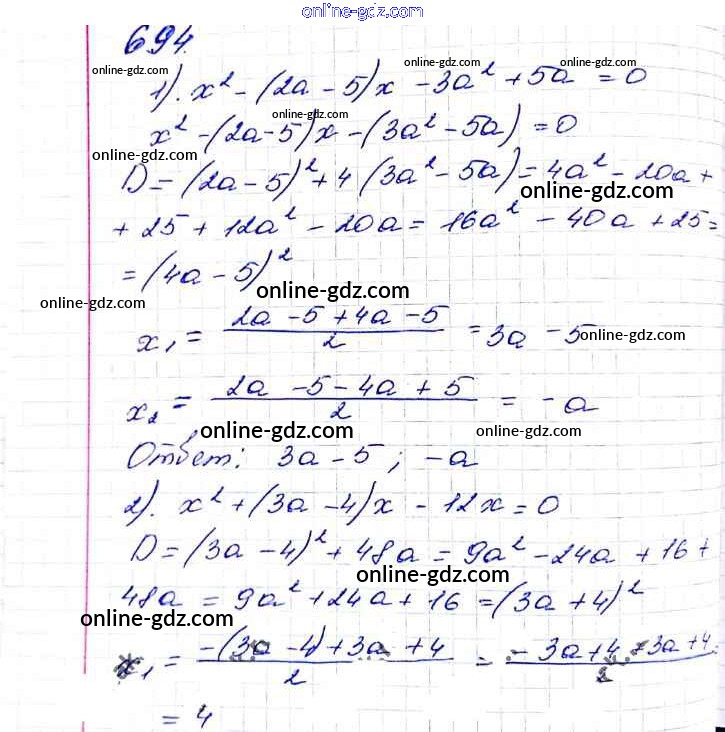 online-gdz.com
694.
1). x² - (2a - 5)x - 3a² + 5a = 0
x² - (2a - 5)x - (3a² - 5a) = 0
D = (2a - 5)² + 4(3a² - 5a) = 4a² - 20a +
+ 25 + 12a² - 20a = 16a² - 40a + 25 =
= (4a - 5)²
x₁ = (2a - 5 + 4a - 5)/2 = 3a - 5
x₂ = (2a - 5 - 4a + 5)/2 = -a
Ответ: 3a - 5; -a
2). x² + (3a - 4)x - 12x = 0
D = (3a - 4)² + 48a = 9a² - 24a + 16 +
48a = 9a² + 24a + 16 = (3a + 4)²
x₁ = (-(3a - 4) + 3a + 4)/2 = (-3a + 4 + 3a + 4)/2
= 4
online-gdz.com
online-gdz.com
online-gdz.com
online-gdz.com
online-gdz.com
online-gdz.com
online-gdz.com
online-gdz.com
online-gdz.com
online-gdz.com
online-gdz.com
online-gdz.com
online-gdz.com